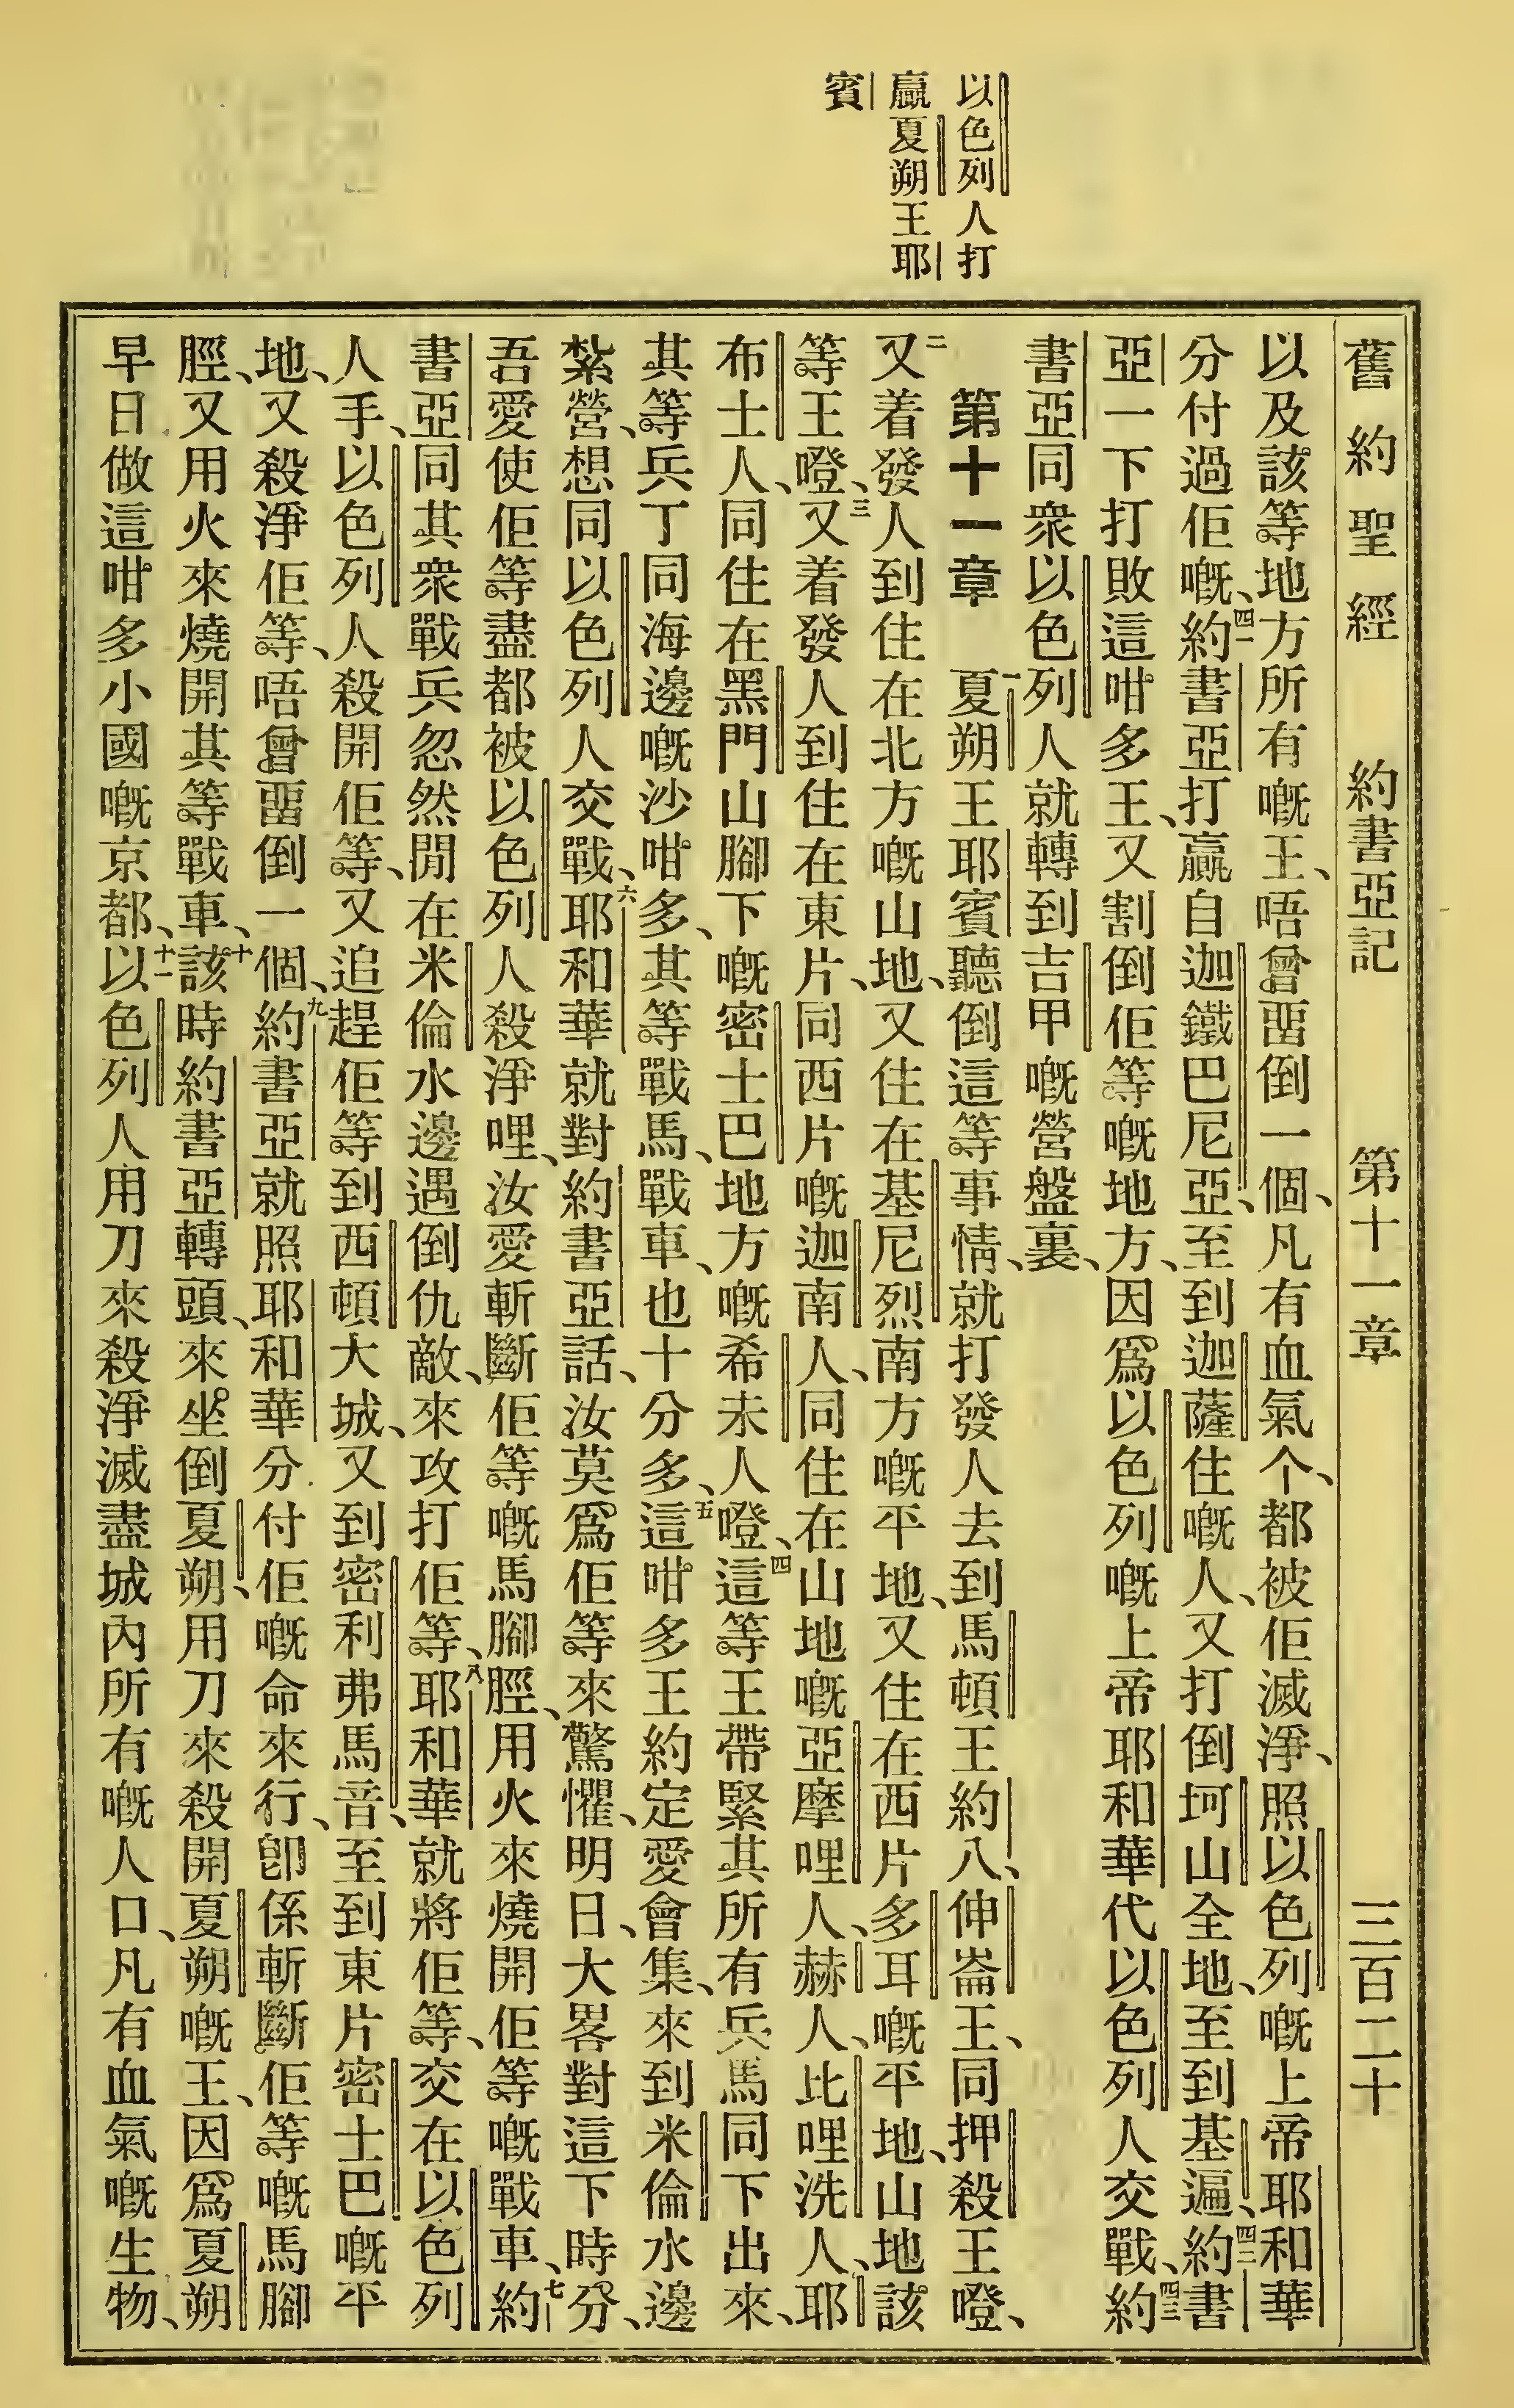 以色列人打
贏夏朔王耶
賓
舊約聖經 約書亞記 第十一章 三百二十
以及該等地方所有嘅王、唔曾畱倒一個、凡有血氣个、都被佢滅淨、照以色列嘅上帝耶和華
分付過佢嘅、四一約書亞打贏自迦鐵巴尼亞、至到迦薩住嘅人、又打倒坷山全地、至到基遍、四二約書
亞一下打敗這咁多王、又割倒佢等嘅地方、因爲以色列嘅上帝耶和華代以色列人交戰、四三約
書亞同衆以色列人就轉到吉甲嘅營盤裏、
第十一章 一夏朔王耶賓聽倒這等事情、就打發人去到馬頓王約八、伸崙王、同押殺王噔、
二又着發人到住在北方嘅山地、又住在基尼烈南方嘅平地、又住在西片多耳嘅平地、山地該
等王噔、三又着發人到住在東片、同西片嘅迦南人、同住在山地嘅亞摩哩人、赫人、比哩洗人、耶
布士人、同住在黑門山腳下嘅密士巴地方嘅希未人噔、四這等王帶緊其所有兵馬同下出來、
其等兵丁同海邊嘅沙咁多、其等戰馬、戰車、也十分多、五這咁多王約定愛會集、來到米倫水邊
紮營、想同以色列人交戰、六耶和華就對約書亞話、汝莫爲佢等來驚懼、明日、大畧對這下時分、
吾愛使佢等盡都被以色列人殺淨哩、汝愛斬斷佢等嘅馬腳脛、用火來燒開佢等嘅戰車、七約
書亞同其衆戰兵忽然閒在米倫水邊遇倒仇敵、來攻打佢等、八耶和華就將佢等、交在以色列
人手、以色列人殺開佢等、又追趕佢等到西頓大城、又到密利弗馬音、至到東片密士巴嘅平
地、又殺淨佢等、唔曾畱倒一個、九約書亞就照耶和華分付佢嘅命來行、卽係斬斷佢等嘅馬腳
脛、又用火來燒開其等戰車、十該時約書亞轉頭、來坐倒夏朔、用刀來殺開夏朔嘅王、因爲夏朔
早日做這咁多小國嘅京都、十一以色列人用刀來殺淨滅盡城內所有嘅人口、凡有血氣嘅生物、